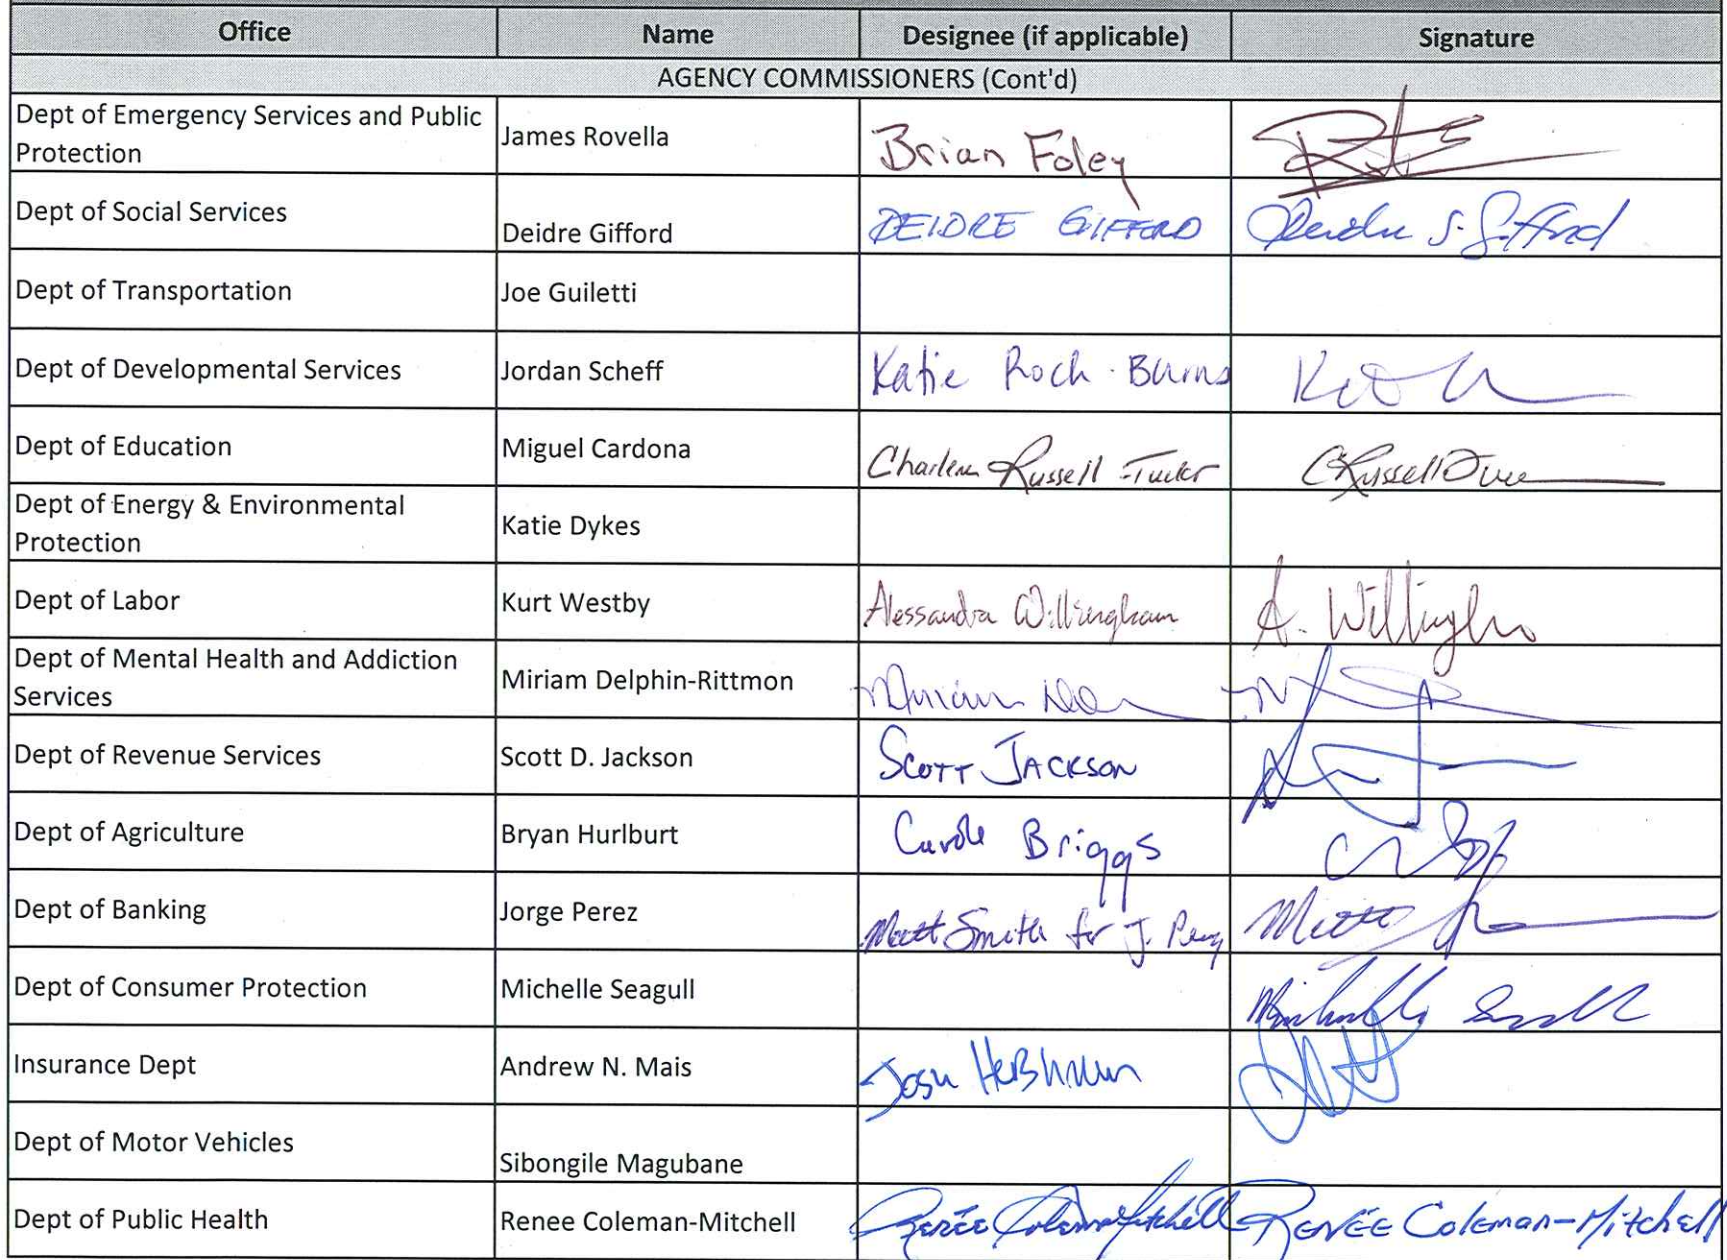 Office Name Designee (if applicable) Signature
AGENCY COMMISSIONERS (Cont'd)
Dept of Emergency Services and Public
Protection
James Rovella Brian Foley
Dept of Social Services Deidre Gifford DEIDRE GIFFORD Deirdre S. Gifford
Dept of Transportation Joe Guiletti
Dept of Developmental Services Jordan Scheff Katie Roch-Burns
Dept of Education Miguel Cardona Charlene Russell-Tucker CRussell
Dept of Energy & Environmental
Protection
Katie Dykes
Dept of Labor Kurt Westby Alessandra Willingham A.
Dept of Mental Health and Addiction
Services
Miriam Delphin-Rittmon Miriam
Dept of Revenue Services Scott D. Jackson SCOTT JACKSON
Dept of Agriculture Bryan Hurlburt Carole Briggs
Dept of Banking Jorge Perez Matt Smith for J. Perez Matt
Dept of Consumer Protection Michelle Seagull
Insurance Dept Andrew N. Mais Josh Hershman
Dept of Motor Vehicles Sibongile Magubane
Dept of Public Health Renee Coleman-Mitchell Renée Coleman-Mitchell RENÉE Coleman-Mitchell